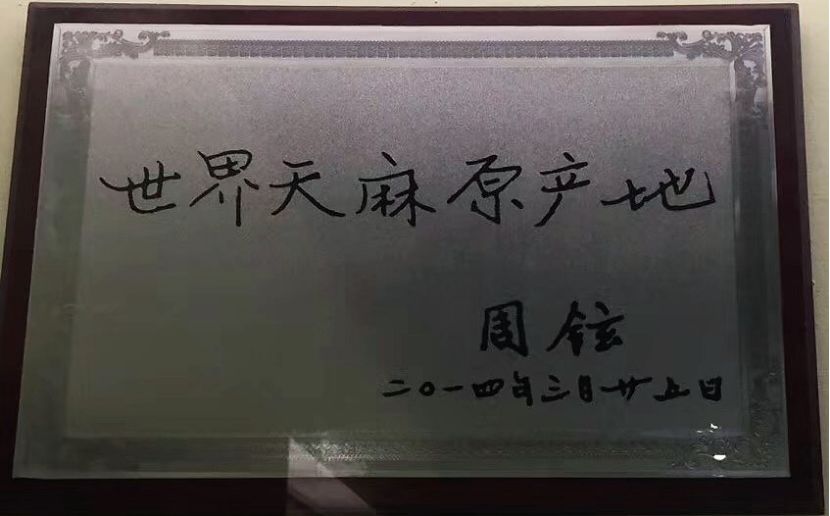 世界天麻原产地
周铉
二〇一四年三月廿五日